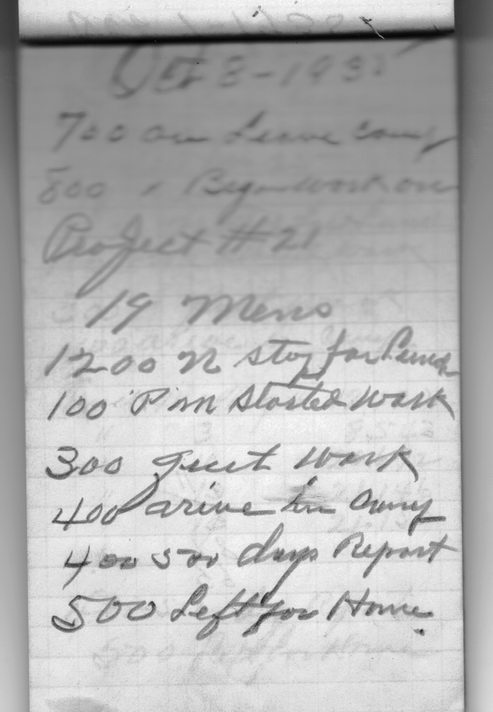 Oct 8-1935
700 am Leave camp
800 " Begin work on
Project #21
19 Mens
1200 N stop for Lunch
100 Pm Started Work
300 Quit Work
400 P arive in Camp
400 500 days Report
500 Left for Home.